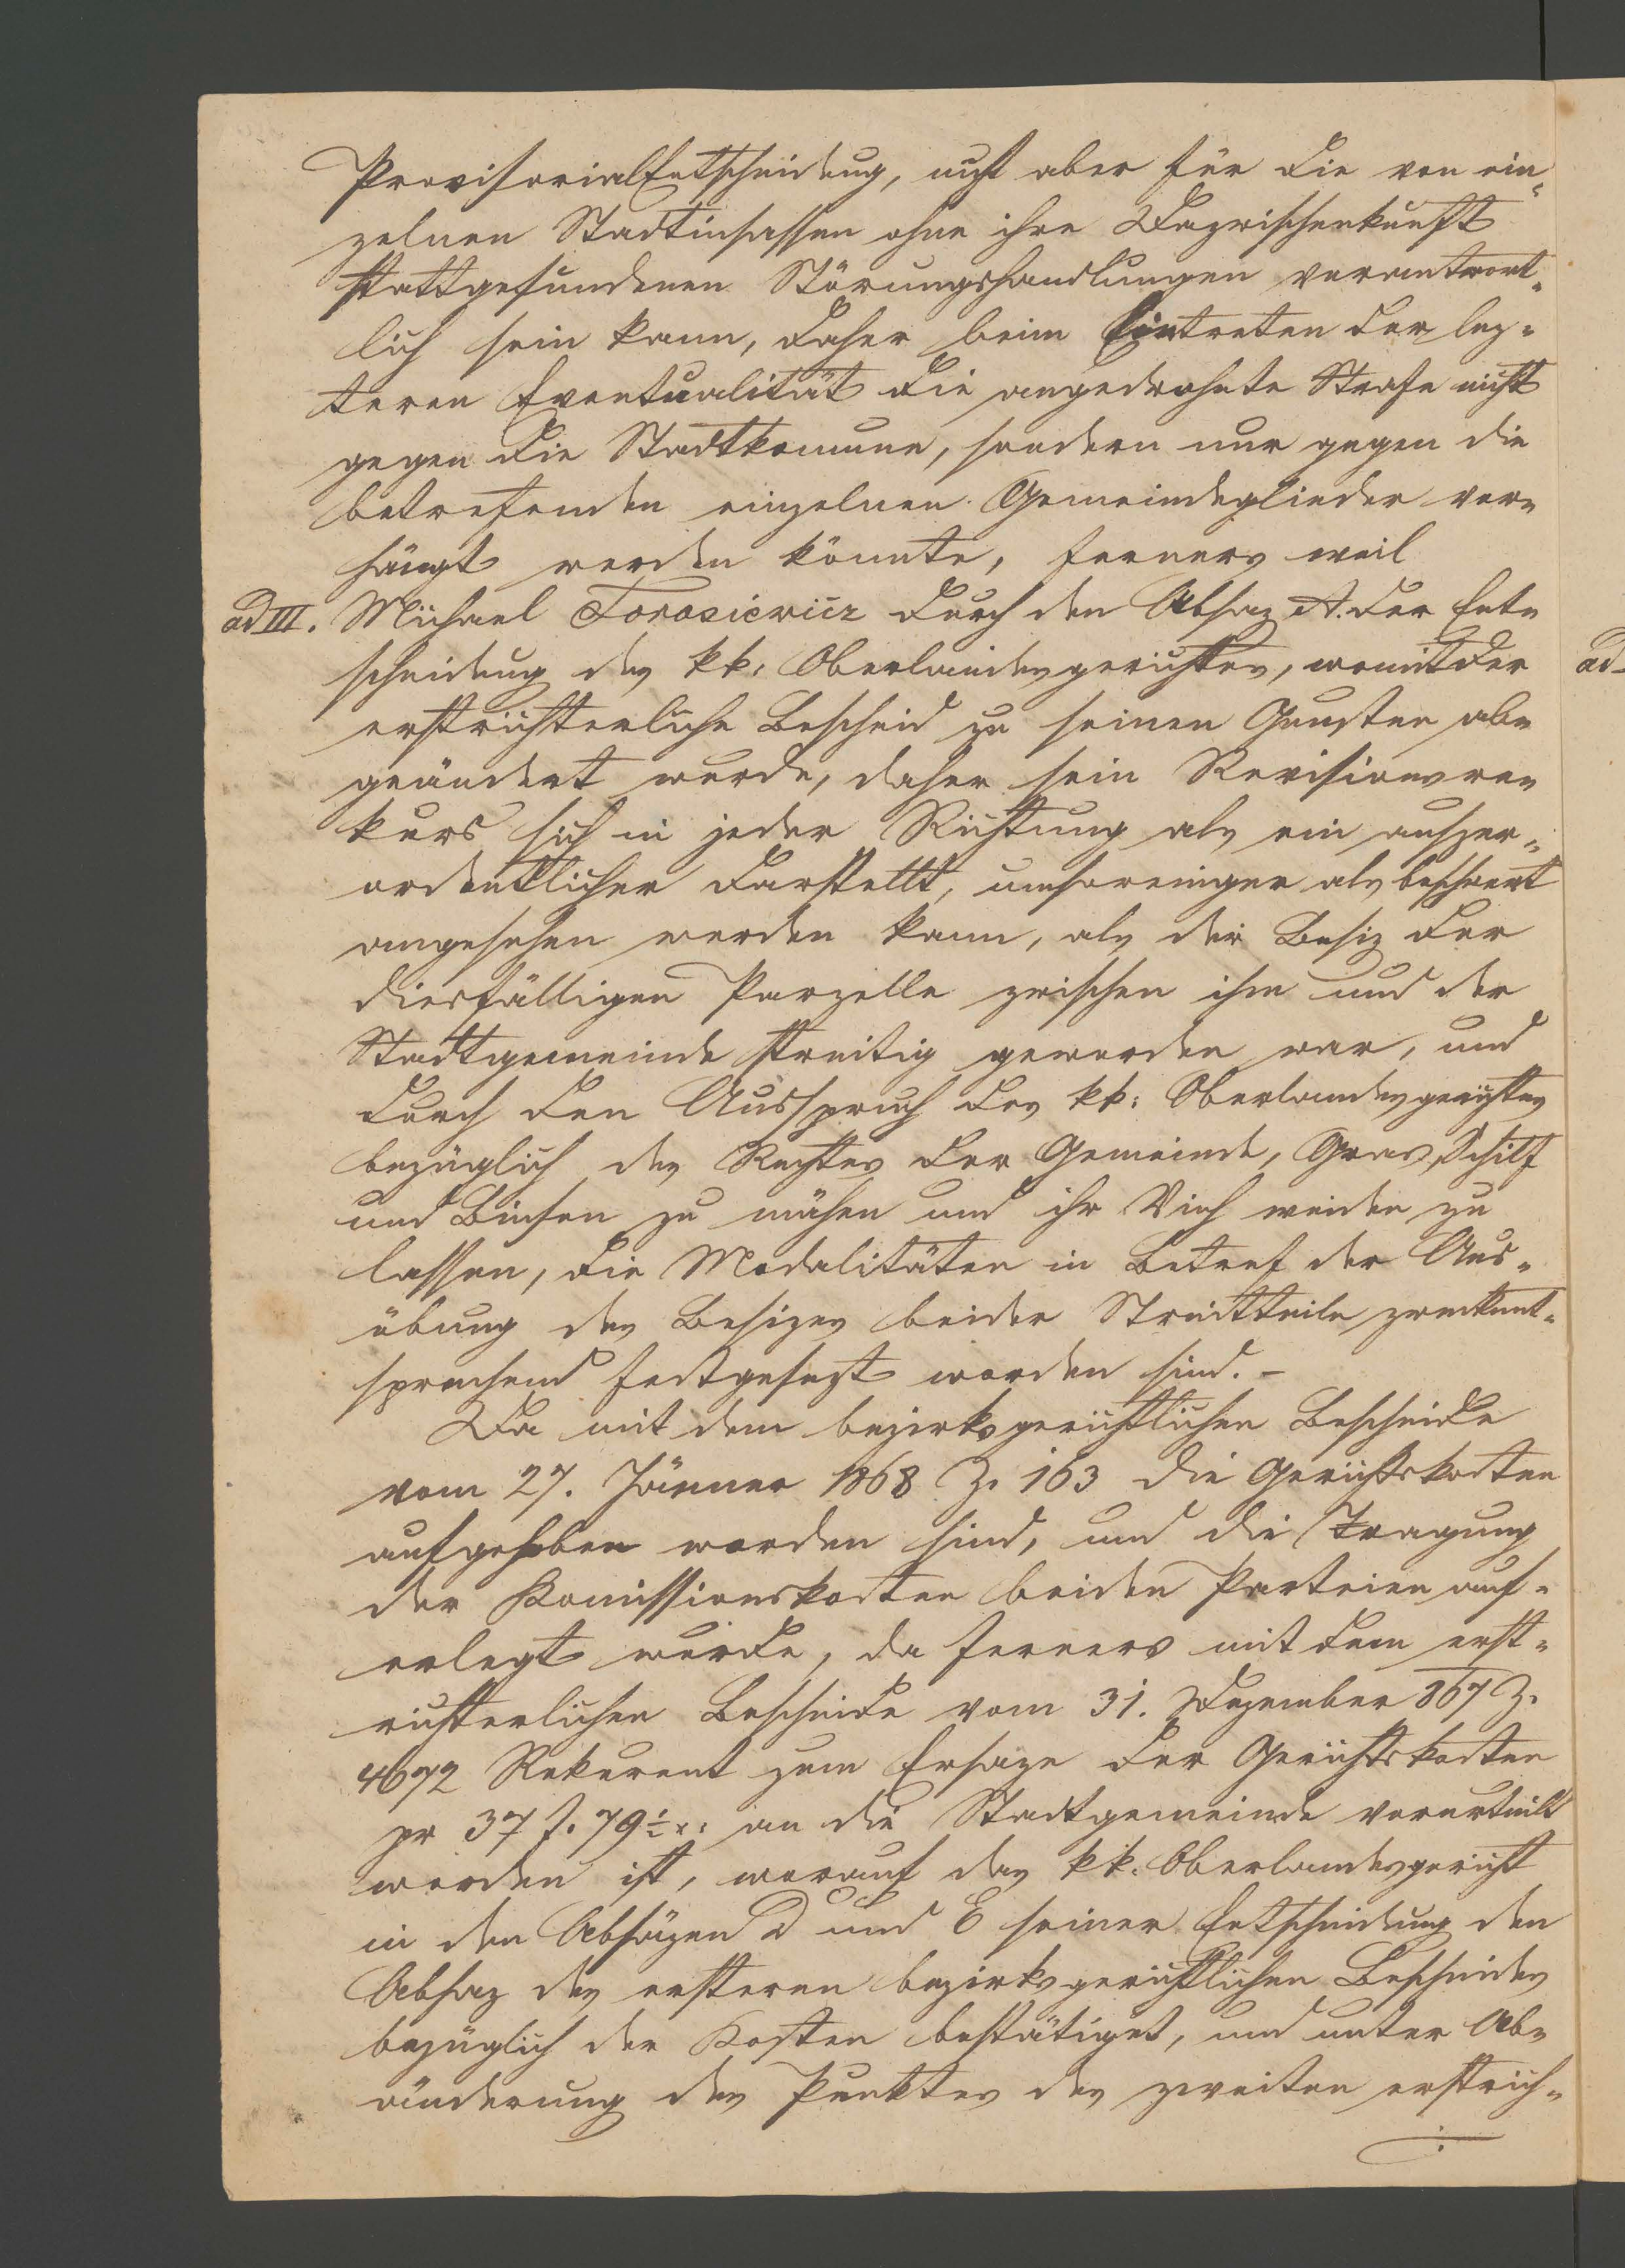 Provisorialentscheidung, nicht aber für die von ein„
zelnen Stadtinsassen ohne ihre Dazwischenkunft
stattgefundenen Störungshandlungen verantwort„
lich sein kann, daher beim Eintreten der lez„
teren Eventualität die angedrohte Strafe nicht
gegen die Stadtkomune, sondern nur gegen die
betrefenden einzelnen Gemeindeglieder ver„
hängt werden könnte, ferners weil
ad III. Michael Torosiewicz durch den Absaz A. der Ent„
scheidung des kk: Oberlandesgerichtes, womit der
erstrichterliche Bescheid zu seinen Gunsten ab„
geändert wurde, daher sein Revisionsre„
kurs sich in jeder Richtung als ein auszer„
ordentlicher darstellt, umsoweniger als beschwert
angesehen werden kann, als der Besiz der
diesfälligen Parzelle zwischen ihm und der
Stadtgemeinde streitig geworden war, und
durch den Ausspruch des kk: Oberlandesgerichtes
bezüglich des Rechtes der Gemeinde, Gras, Schilf
und Binsen zu mähen und ihr Vieh weiden zu
lassen, die Modalitäten in Betref der Aus„
übung des Besizes beider Streittheile zweckent„
sprechend festgesezt worden sind. –
Da mit dem bezirksgerichtlichen Bescheide
vom 27. Jänner 1868 Z. 163 die Gerichtskosten
aufgehoben worden sind, und die Tragung
der Komissionskosten beiden Parteien auf„
erlegt wurde, da ferners mit dem erst„
richterlichen Bescheide vom 31. Dezember 867 Z.
4672 Rekurent zum Ersaze der Gerichtskosten
pr 37 f. 79 ½ x: an die Stadtgemeinde verurtheilt
worden ist, worauf das kk. Oberlandesgericht
in den Absäzen D und E seiner Entscheidung den
Absaz des ersteren bezirksgerichtlichen Bescheides
bezüglich der Kosten bestätiget, und unter Ab„
änderung des Punktes des zweiten erstrich„
ad